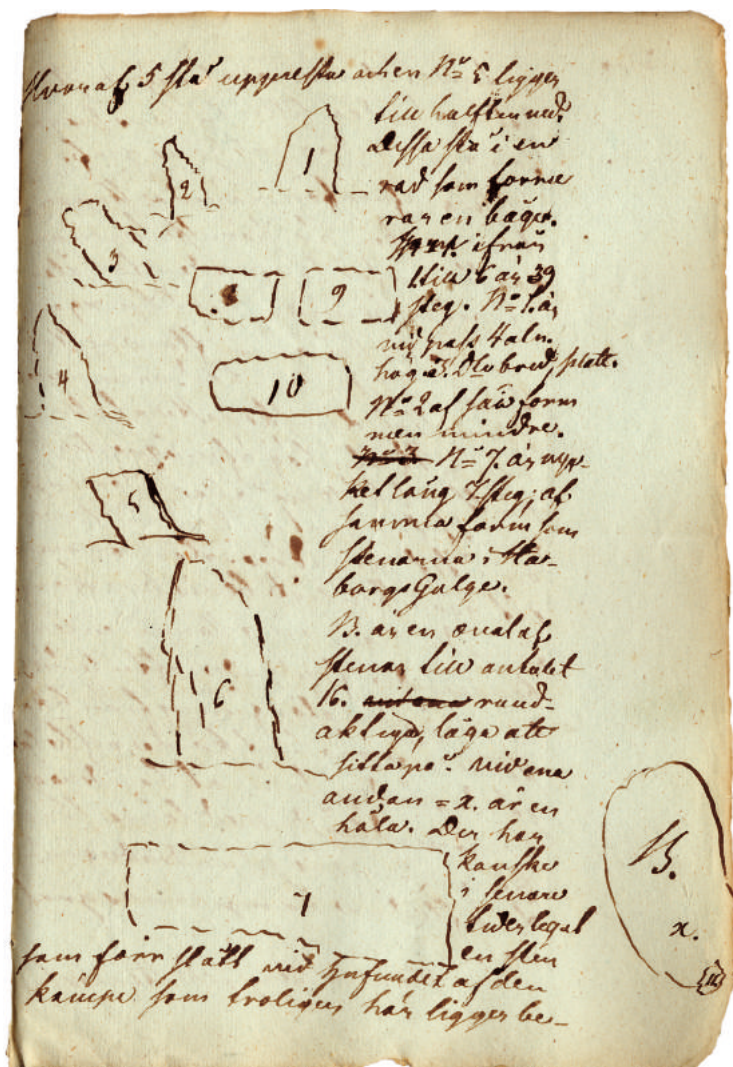 Hvaraf 5 stå uppresta och en No 5 ligger
till hälften ned.
Dessa stå i en
rad som forme
rar en båge.
ifrån
1 till 6 är 39
steg. No 1. är
vid pass 4 aln.
hög, 3. Do bred, platt.
No 2 af samma form
men mindre.
No 3 No 7. är myc-
ket lång 7 steg; af
samma form som
stenarna i Ha-
borgs Galge.
B. är en oval af
stenar till antalet
16. rund-
aktiga, låga att
sitta på. Vid ena
ändan = x. är en
håla. Der har
kanske
i senare
tider legat
en sten
som förr stått vid hufvudet af den
kämpe som troligen här ligger be-
1
2
3
8
9
4
10
5
6
7
B.
x.